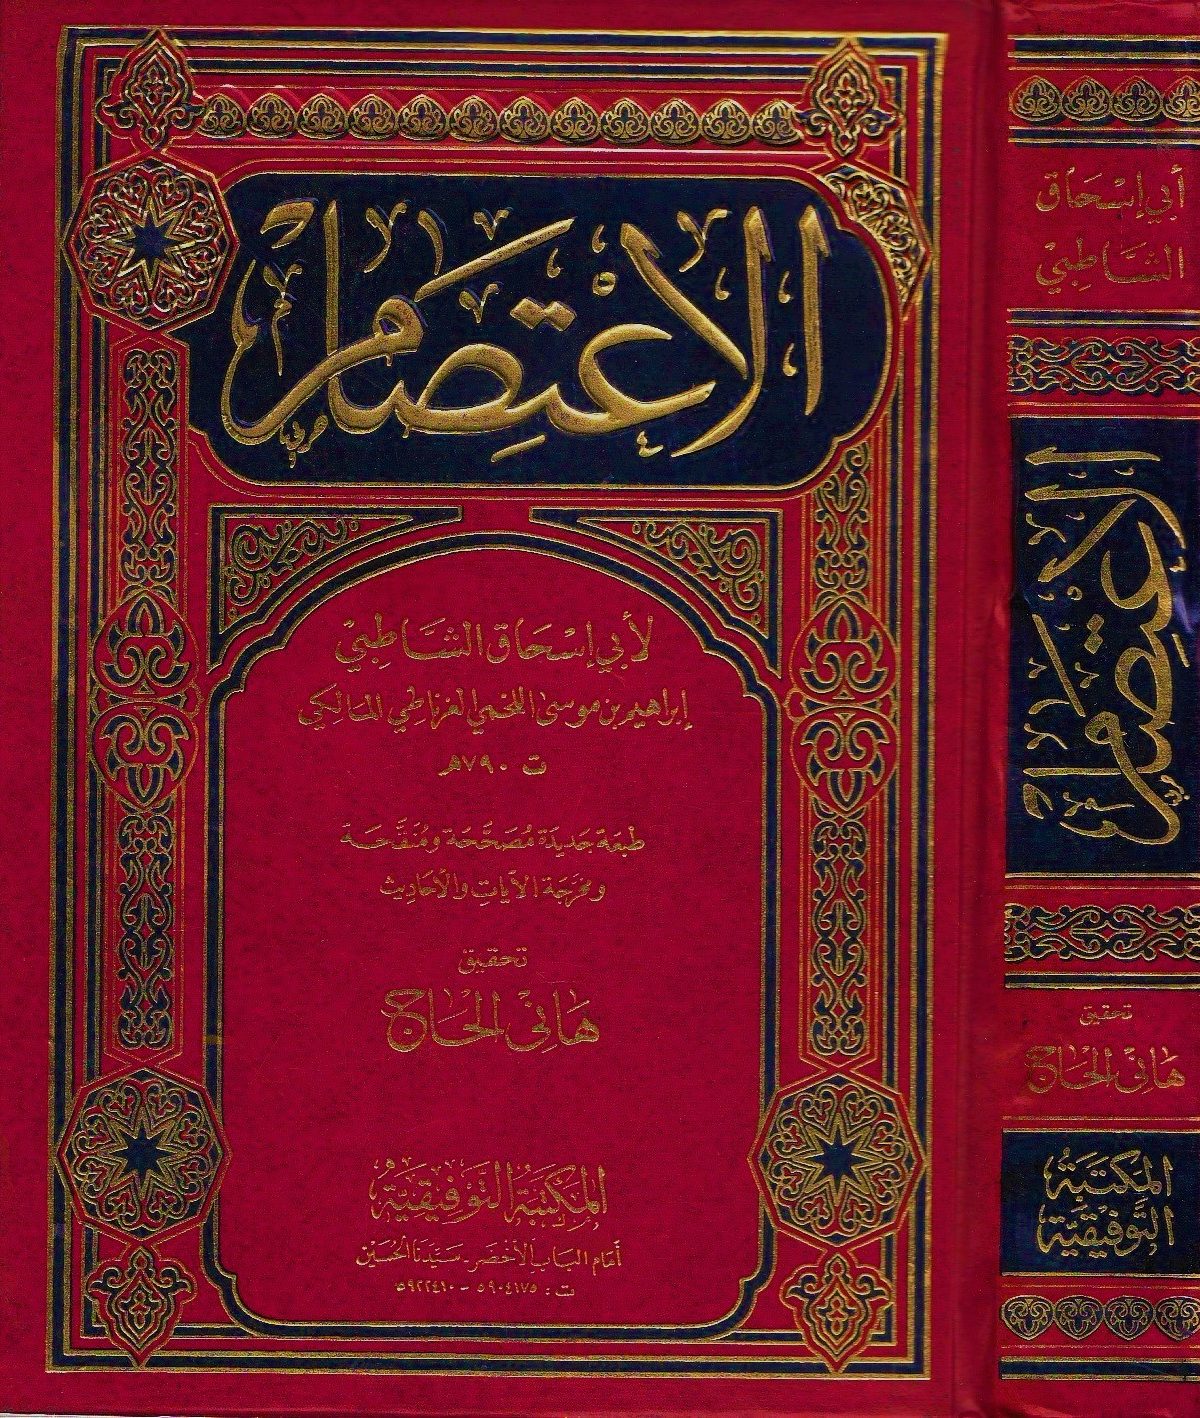 الاعتصام
لأبي إسحاق الشاطبي
إبراهيم بن موسى اللخمي الغرناطي المالكي
ت ٧٩٠هـ
طبعة جديدة مُصَحَّحَة ومُنَقَّحَة
ومخرجة الآيات والأحاديث
تحقيق
هاني الحاج
المكتبة التوفيقية
أمام الباب الأخضر - سيدنا الحسين
ت : ٥٩٠٤١٧٥ - ٥٩٢٢٤١٠
أبي إسحاق
الشاطبي
الاعتصام
تحقيق
هاني الحاج
المكتبة
التوفيقية